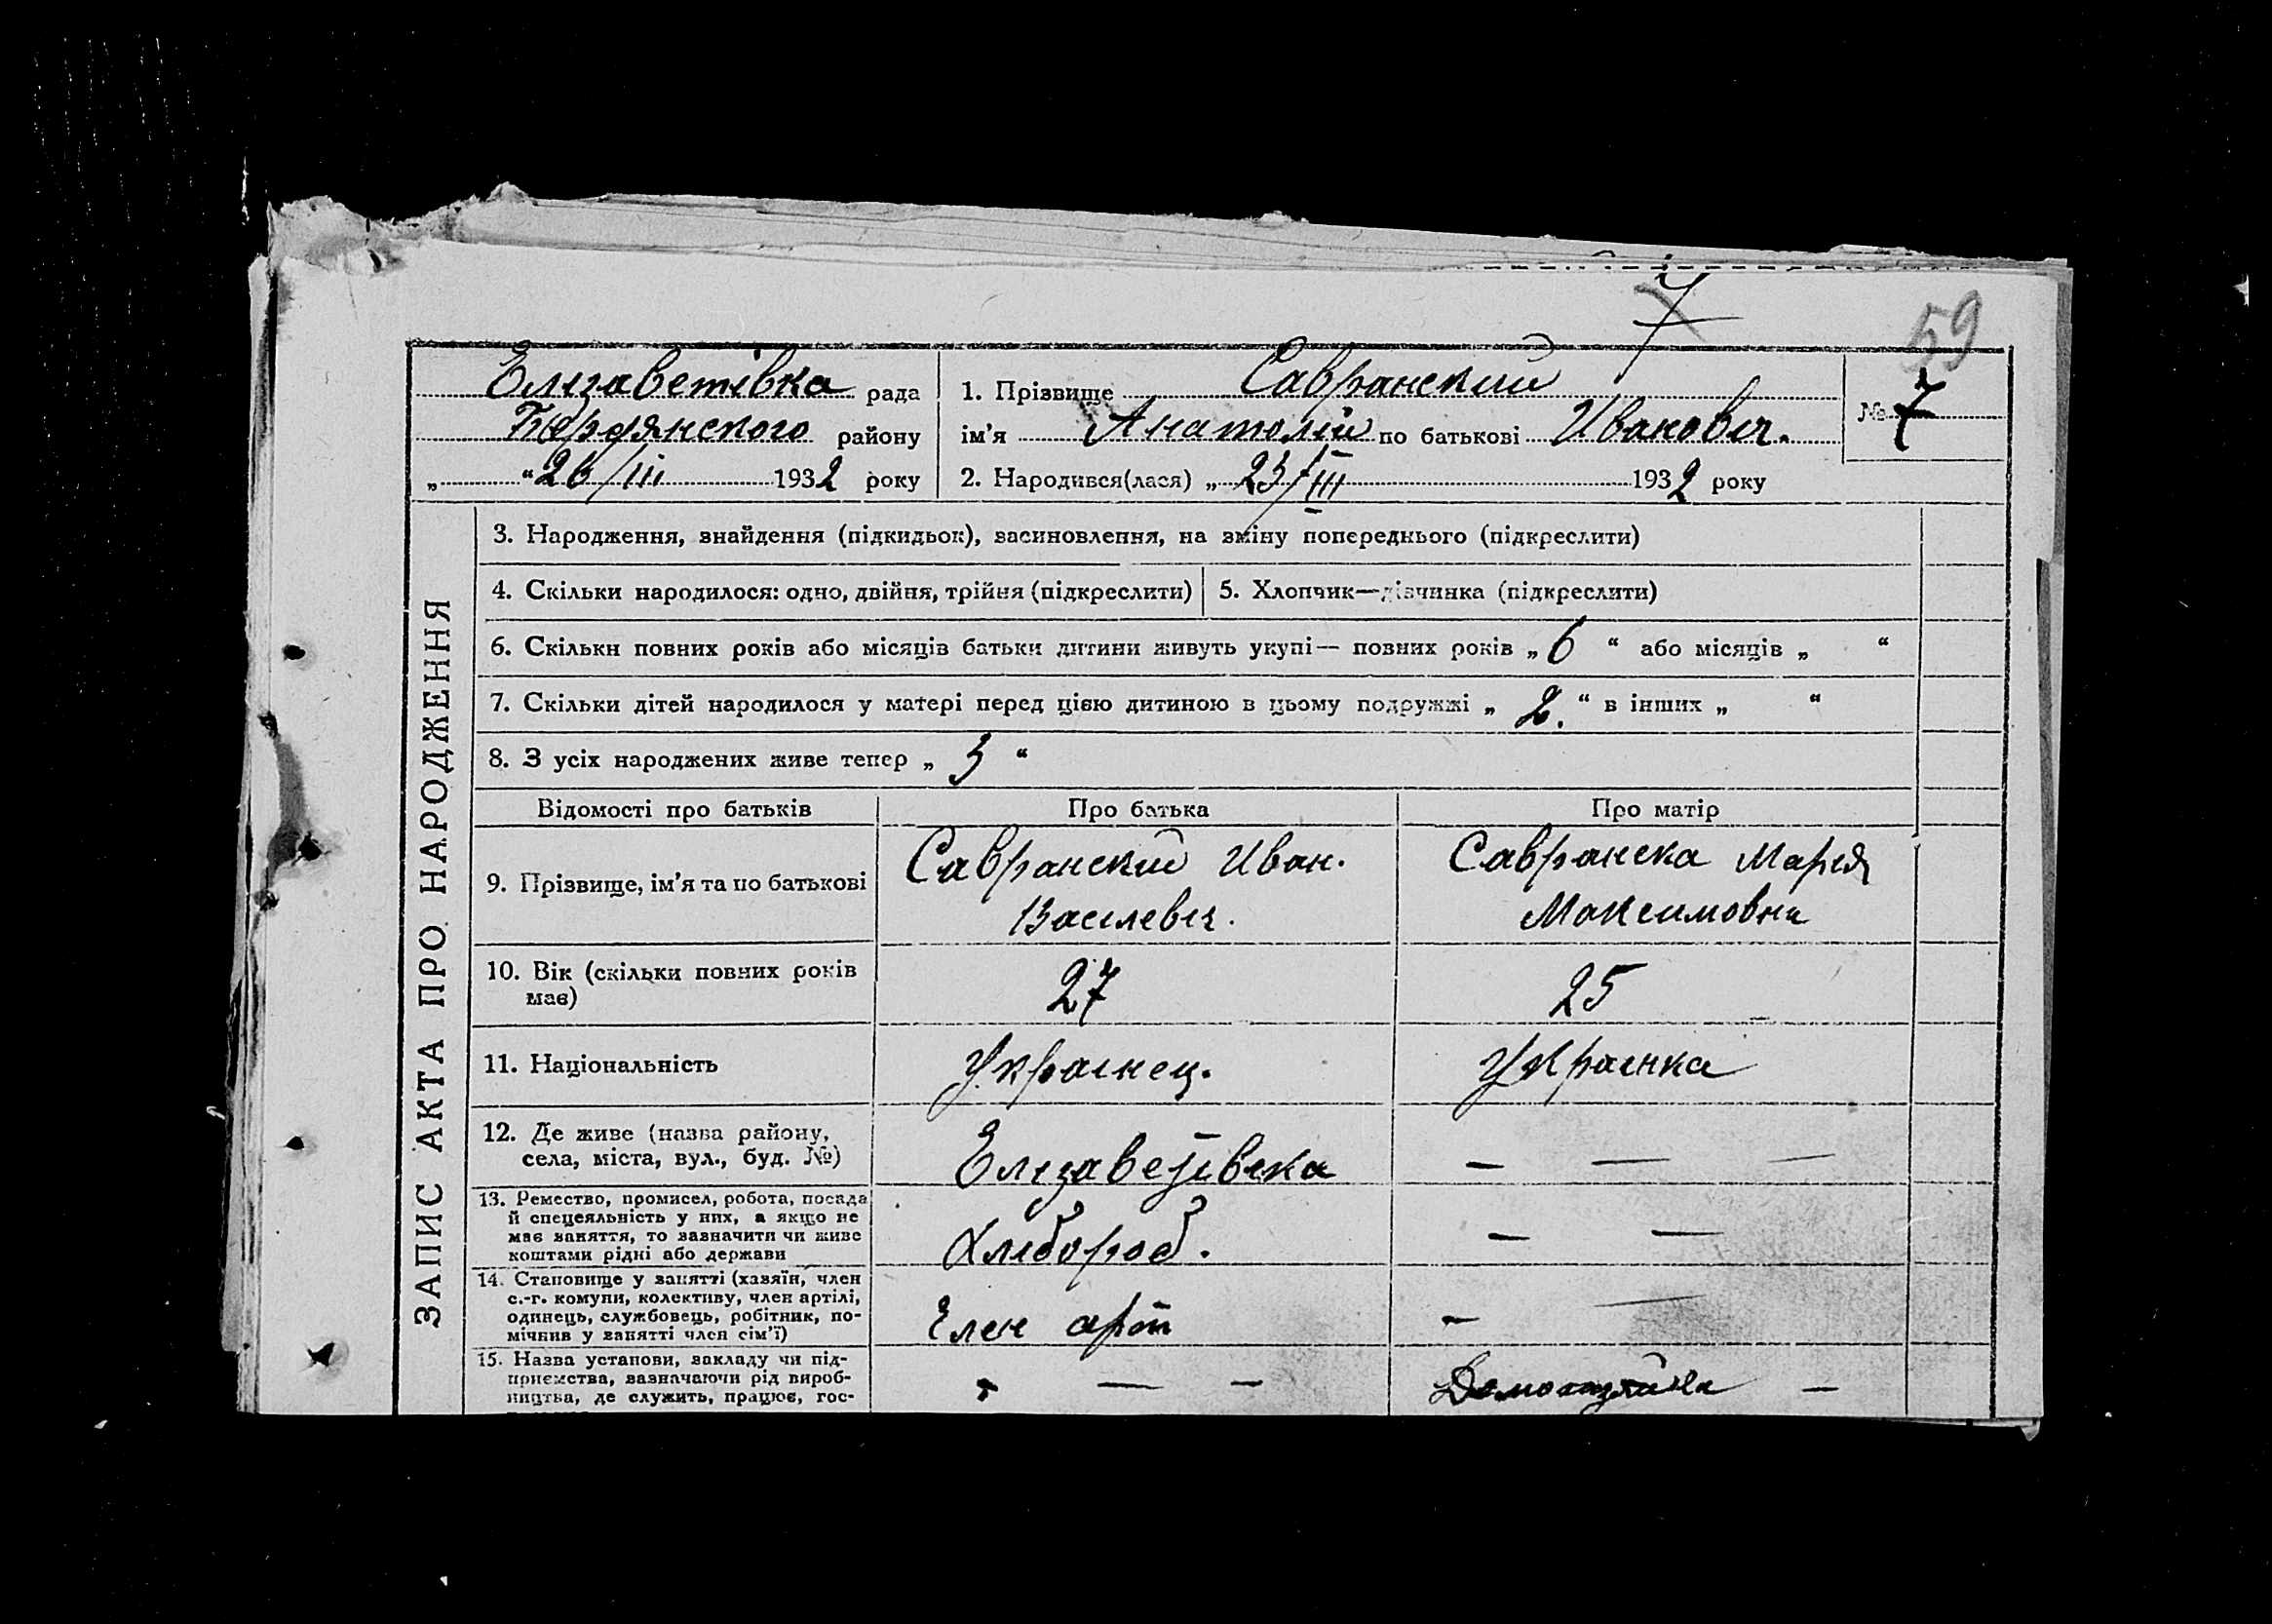 7
59
Елізаветівка рада
Бердянского району
„ “ 26/III 1932 року
1. Прізвище Савранский
ім’я Анатолій по батькові Ивановіч.
№ 7
2. Народився(лася) „ 23/III 1932 року
ЗАПИС АКТА ПРО НАРОДЖЕННЯ
3. Народження, знайдення (підкидьок), засиновлення, на зміну попереднього (підкреслити)
4. Скільки народилося: одно, двійня, трійня (підкреслити)
5. Хлопчик—дівчинка (підкреслити)
6. Скільки повних років або місяців батьки дитини живуть укупі— повних років „ 6 “ або місяців „ “
7. Скільки дітей народилося у матері перед цією дитиною в цьому подружжі „ 2. “ в інших „ “
8. З усіх народжених живе тепер „ 3 “
Відомості про батьків
Про батька
Про матір
9. Прізвище, ім’я та по батькові
Савранский Иван.
Василевіч.
Савранска Марія
Максимовна
10. Вік (скільки повних років
має)
27
25
11. Національність
Українец.
Українка
12. Де живе (назва району,
села, міста, вул., буд. №)
Елізаветівка
— — —
13. Ремество, промисел, робота, посада
й спецеяльність у них, а якщо не
має заняття, то зазначити чи живе
коштами рідні або держави
Хлібороб.
— —
14. Становище у занятті (хазяїн, член
с.-г. комуни, колективу, член артілі,
одинець, службовець, робітник, по-
мічник у занятті член сім’ї)
Член арт
— —
15. Назва установи, закладу чи під-
приємства, зазначаючи рід вироб-
ництва, де служить, працює, гос-
— — —
—